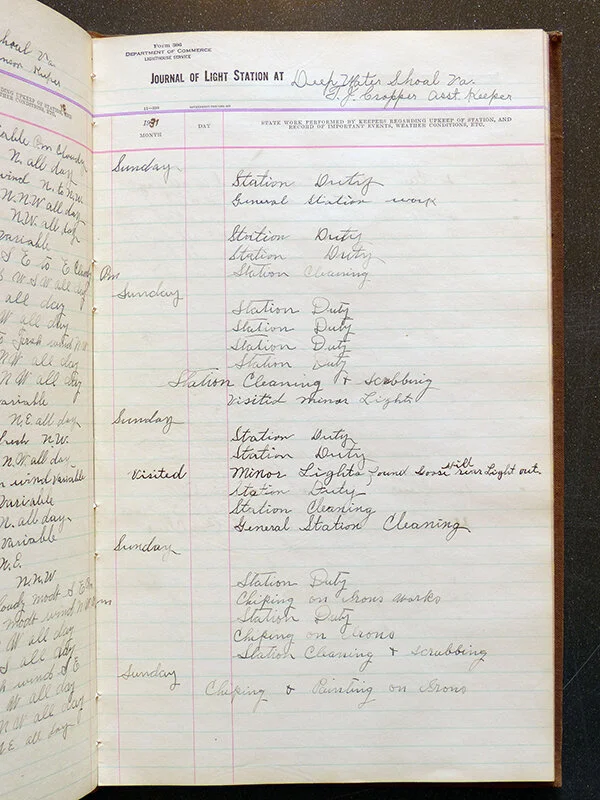 hoal Va.
nson Keeper
ING UPKEEP OF STATION, AND
WEATHER CONDITIONS, ETC.
able Pm Cloudy
N. all day
wind N. to N.W.
N.N.W all day
N.W. all day
Variable
S E to E Cloudy Pm
W S W all day
all day
W all day
E fresh wind N.W
NW all day
N W all day
Variable
N.E. all day
fresh N.W.
N.W. all day
wind variable
Variable
N. all day
Variable
N.E.
N.N.W
Cloudy modt S E Pm
modt wind N W Pm
W all day
S all day
wind S E
W all day
N W all day
N.E. all day
Form 306
DEPARTMENT OF COMMERCE
LIGHTHOUSE SERVICE
JOURNAL OF LIGHT STATION AT Deep Water Shoal Va.
T. J. Cropper Asst. Keeper
1931
MONTH
DAY
STATE WORK PERFORMED BY KEEPERS REGARDING UPKEEP OF STATION, AND
RECORD OF IMPORTANT EVENTS, WEATHER CONDITIONS, ETC.
Sunday
Station Duty
General Station work
Station Duty
Station Duty
Station Cleaning
Sunday
Station Duty
Station Duty
Station Duty
Station Duty
Station Cleaning & Scrubbing
Visited minor Lights
Sunday
Station Duty
Station Duty
Visited Minor Lights, found Goose Hill rear Light out.
Station Duty
Station Cleaning
General Station Cleaning
Sunday
Station Duty
Chiping on Irons works
Station Duty
Chiping on Irons
Station Cleaning & Scrubbing
Sunday
Chiping & Painting on Irons